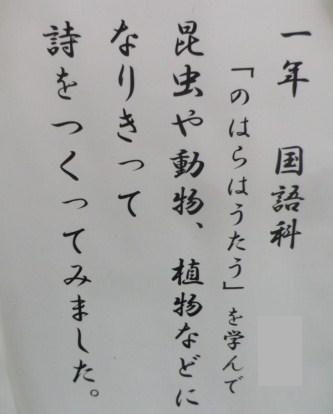 一年　国語科
「のはらはうたう」を学んで
昆虫や動物、植物などに
なりきって
詩をつくってみました。